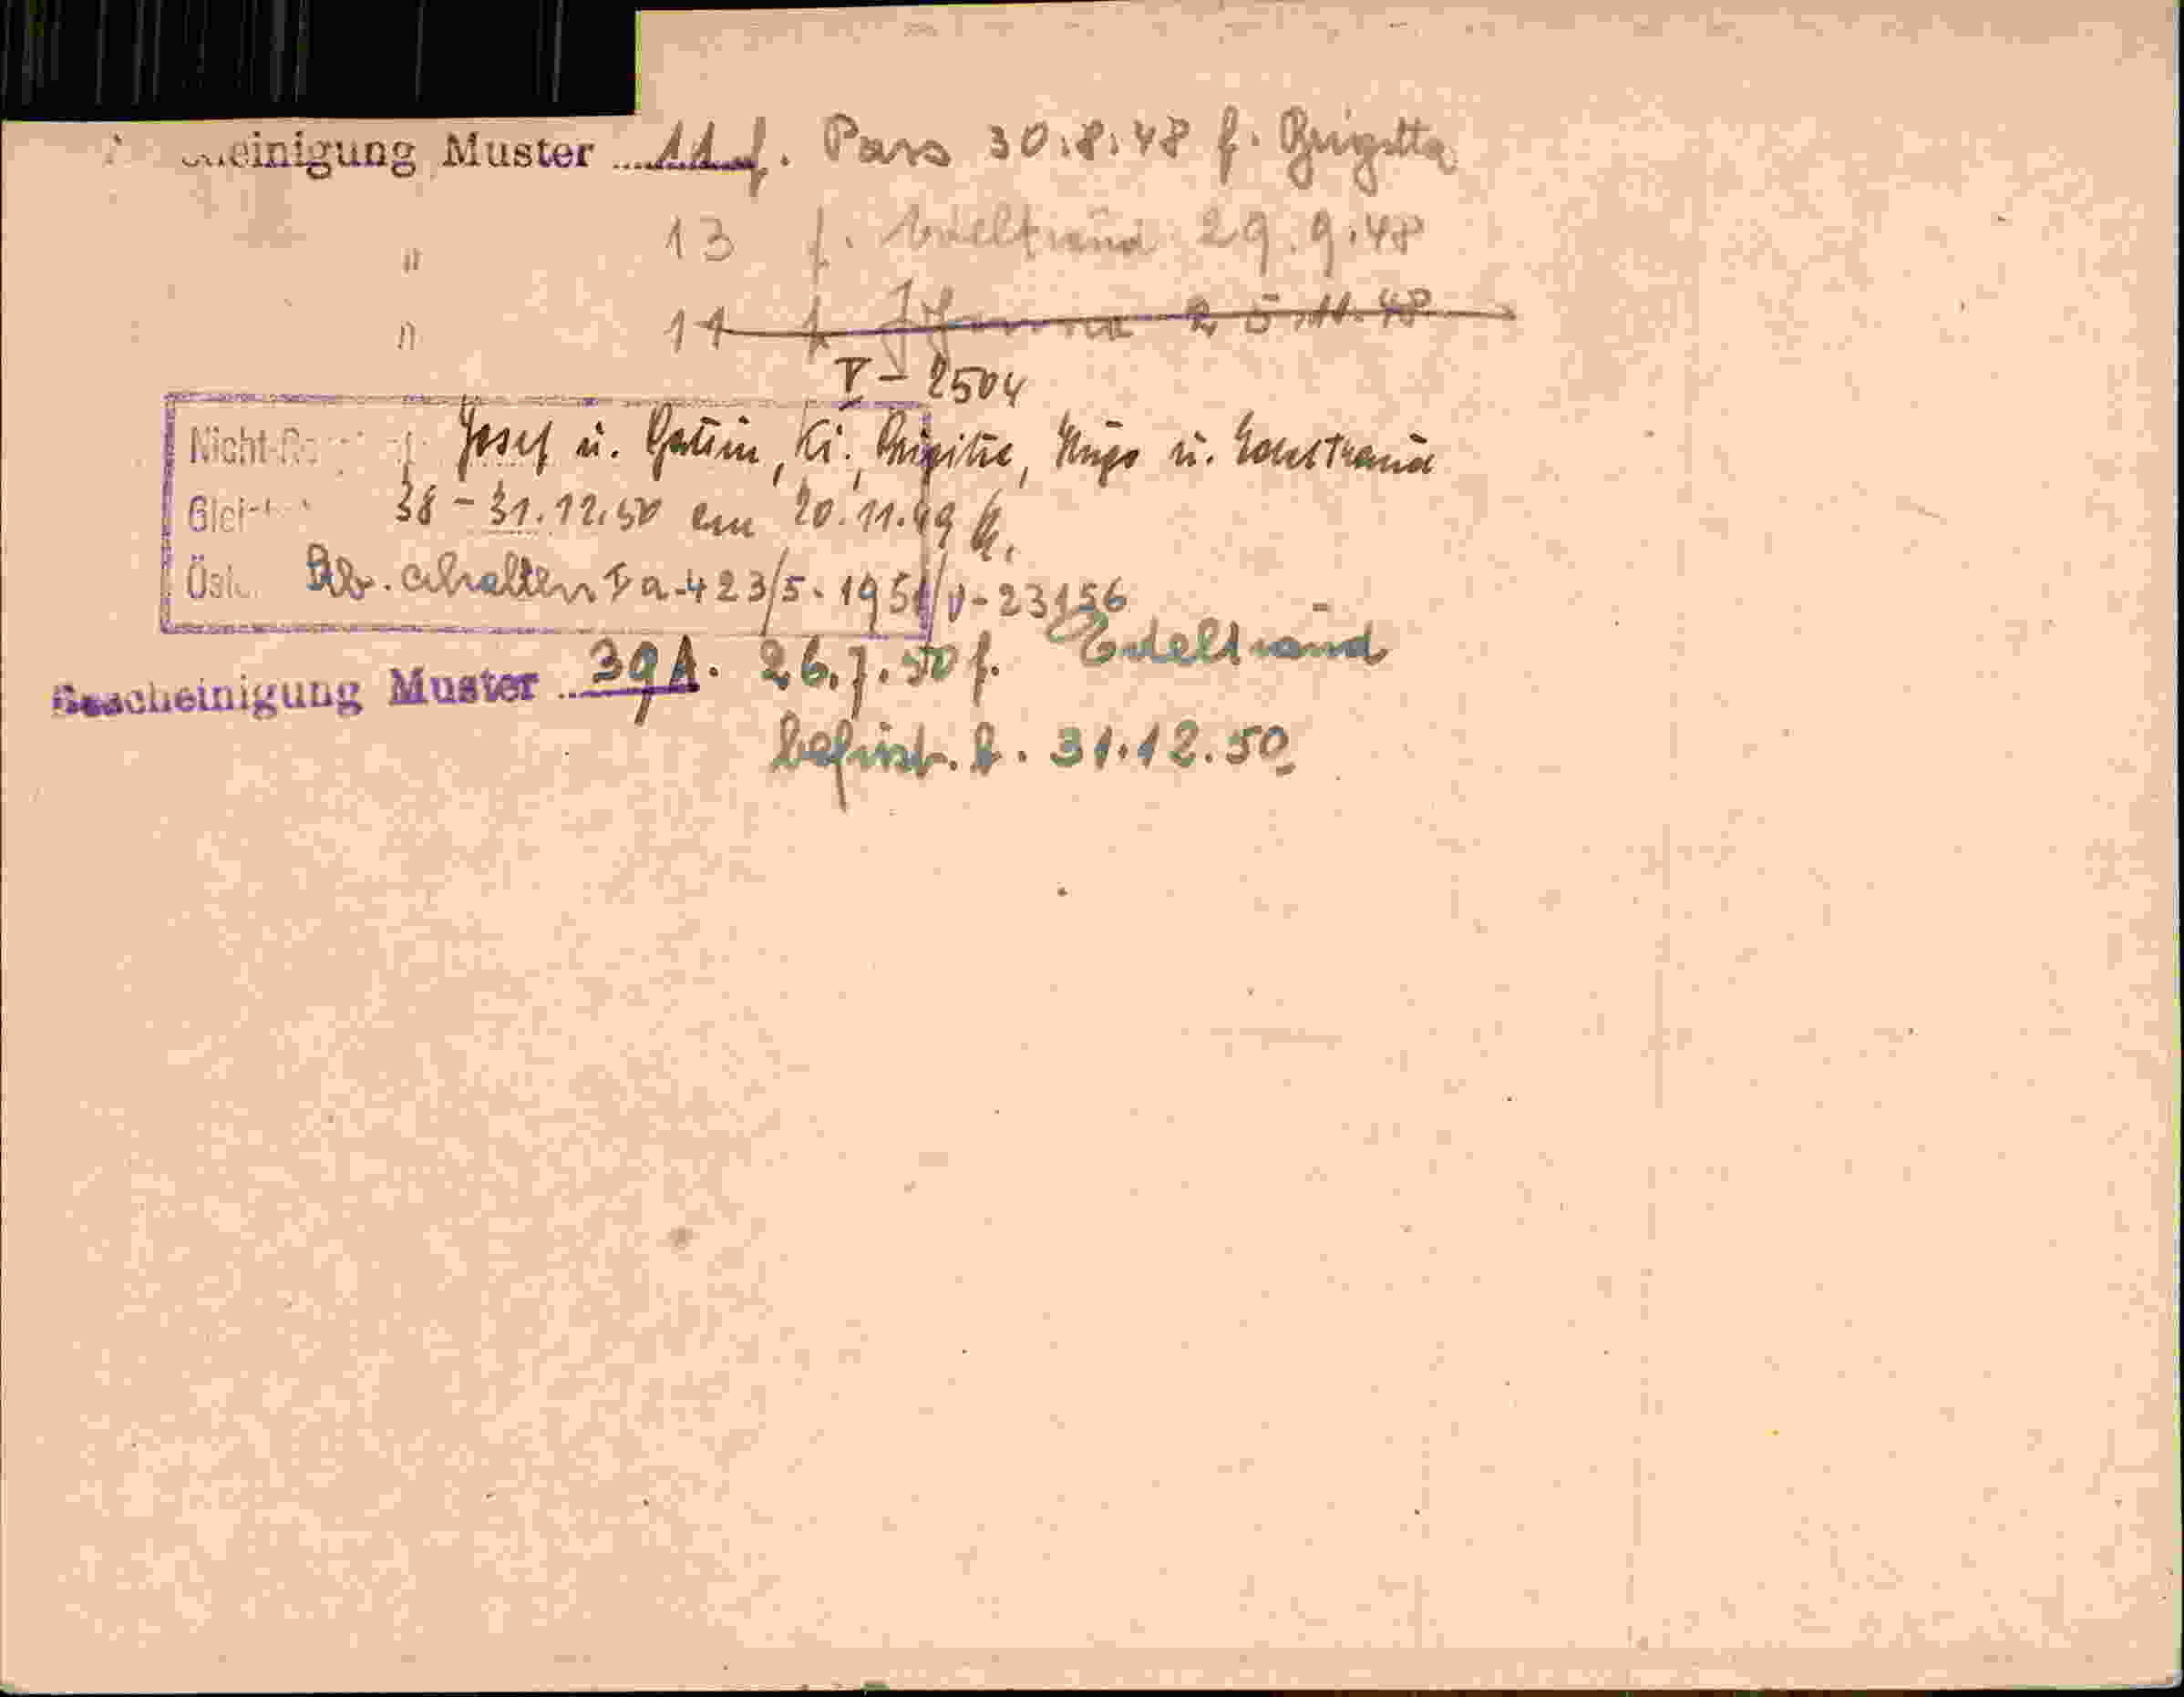 einigung Muster 11 f. Pass 30.8.48 f. Brigitta
" 13 f. Edeltraud 29.9.48
" 11 f. 25.11.48
V-2504
Nicht- Josef u. Gattin, Ki. Brigitte, Hugo u. Edeltraud
Glei- 38 - 31.12.50 am 20.11.49
Öst. erhalten Pa-423/5.1951/V-23156
Bescheinigung Muster 39A. 26.7.50 f. Edeltraud
befrist. b. 31.12.50